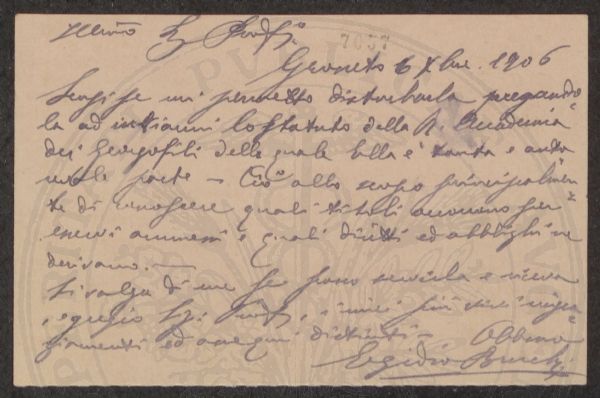 Illmo Sig. Prof.
7657
Grosseto 6 Xbre. 1906
Scusi se mi permetto disturbarla pregando
la ad inviarmi lo Statuto della R. Accademia
dei Georgofili della quale Ella è tanta e auto
revole parte - Ciò allo scopo principalmen
te di conoscere quali titoli occorrono per
esservi ammessi e quali diritti ed obblighi ne
derivano. —
Si valga di me se posso servirla e riceva
egregio Sig. Prof. i miei più vivi ringra
ziamenti ed ossequi distinti - Obbmo
Egidio